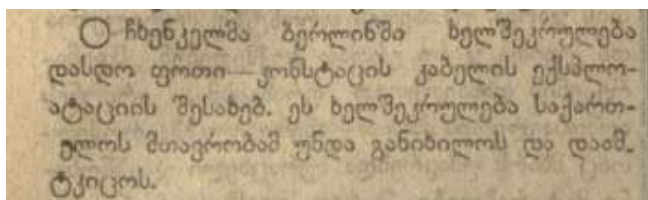 ○ ჩხენკელმა ბერლინში ხელშეკრულება
დასდო ფოთი—კონსტაცის კაბელის ექსპლო-
ატაციის შესახებ. ეს ხელშეკრულება საქართ-
ელოს მთავრობამ უნდა განიხილოს და დაამ.
ტკიცოს.